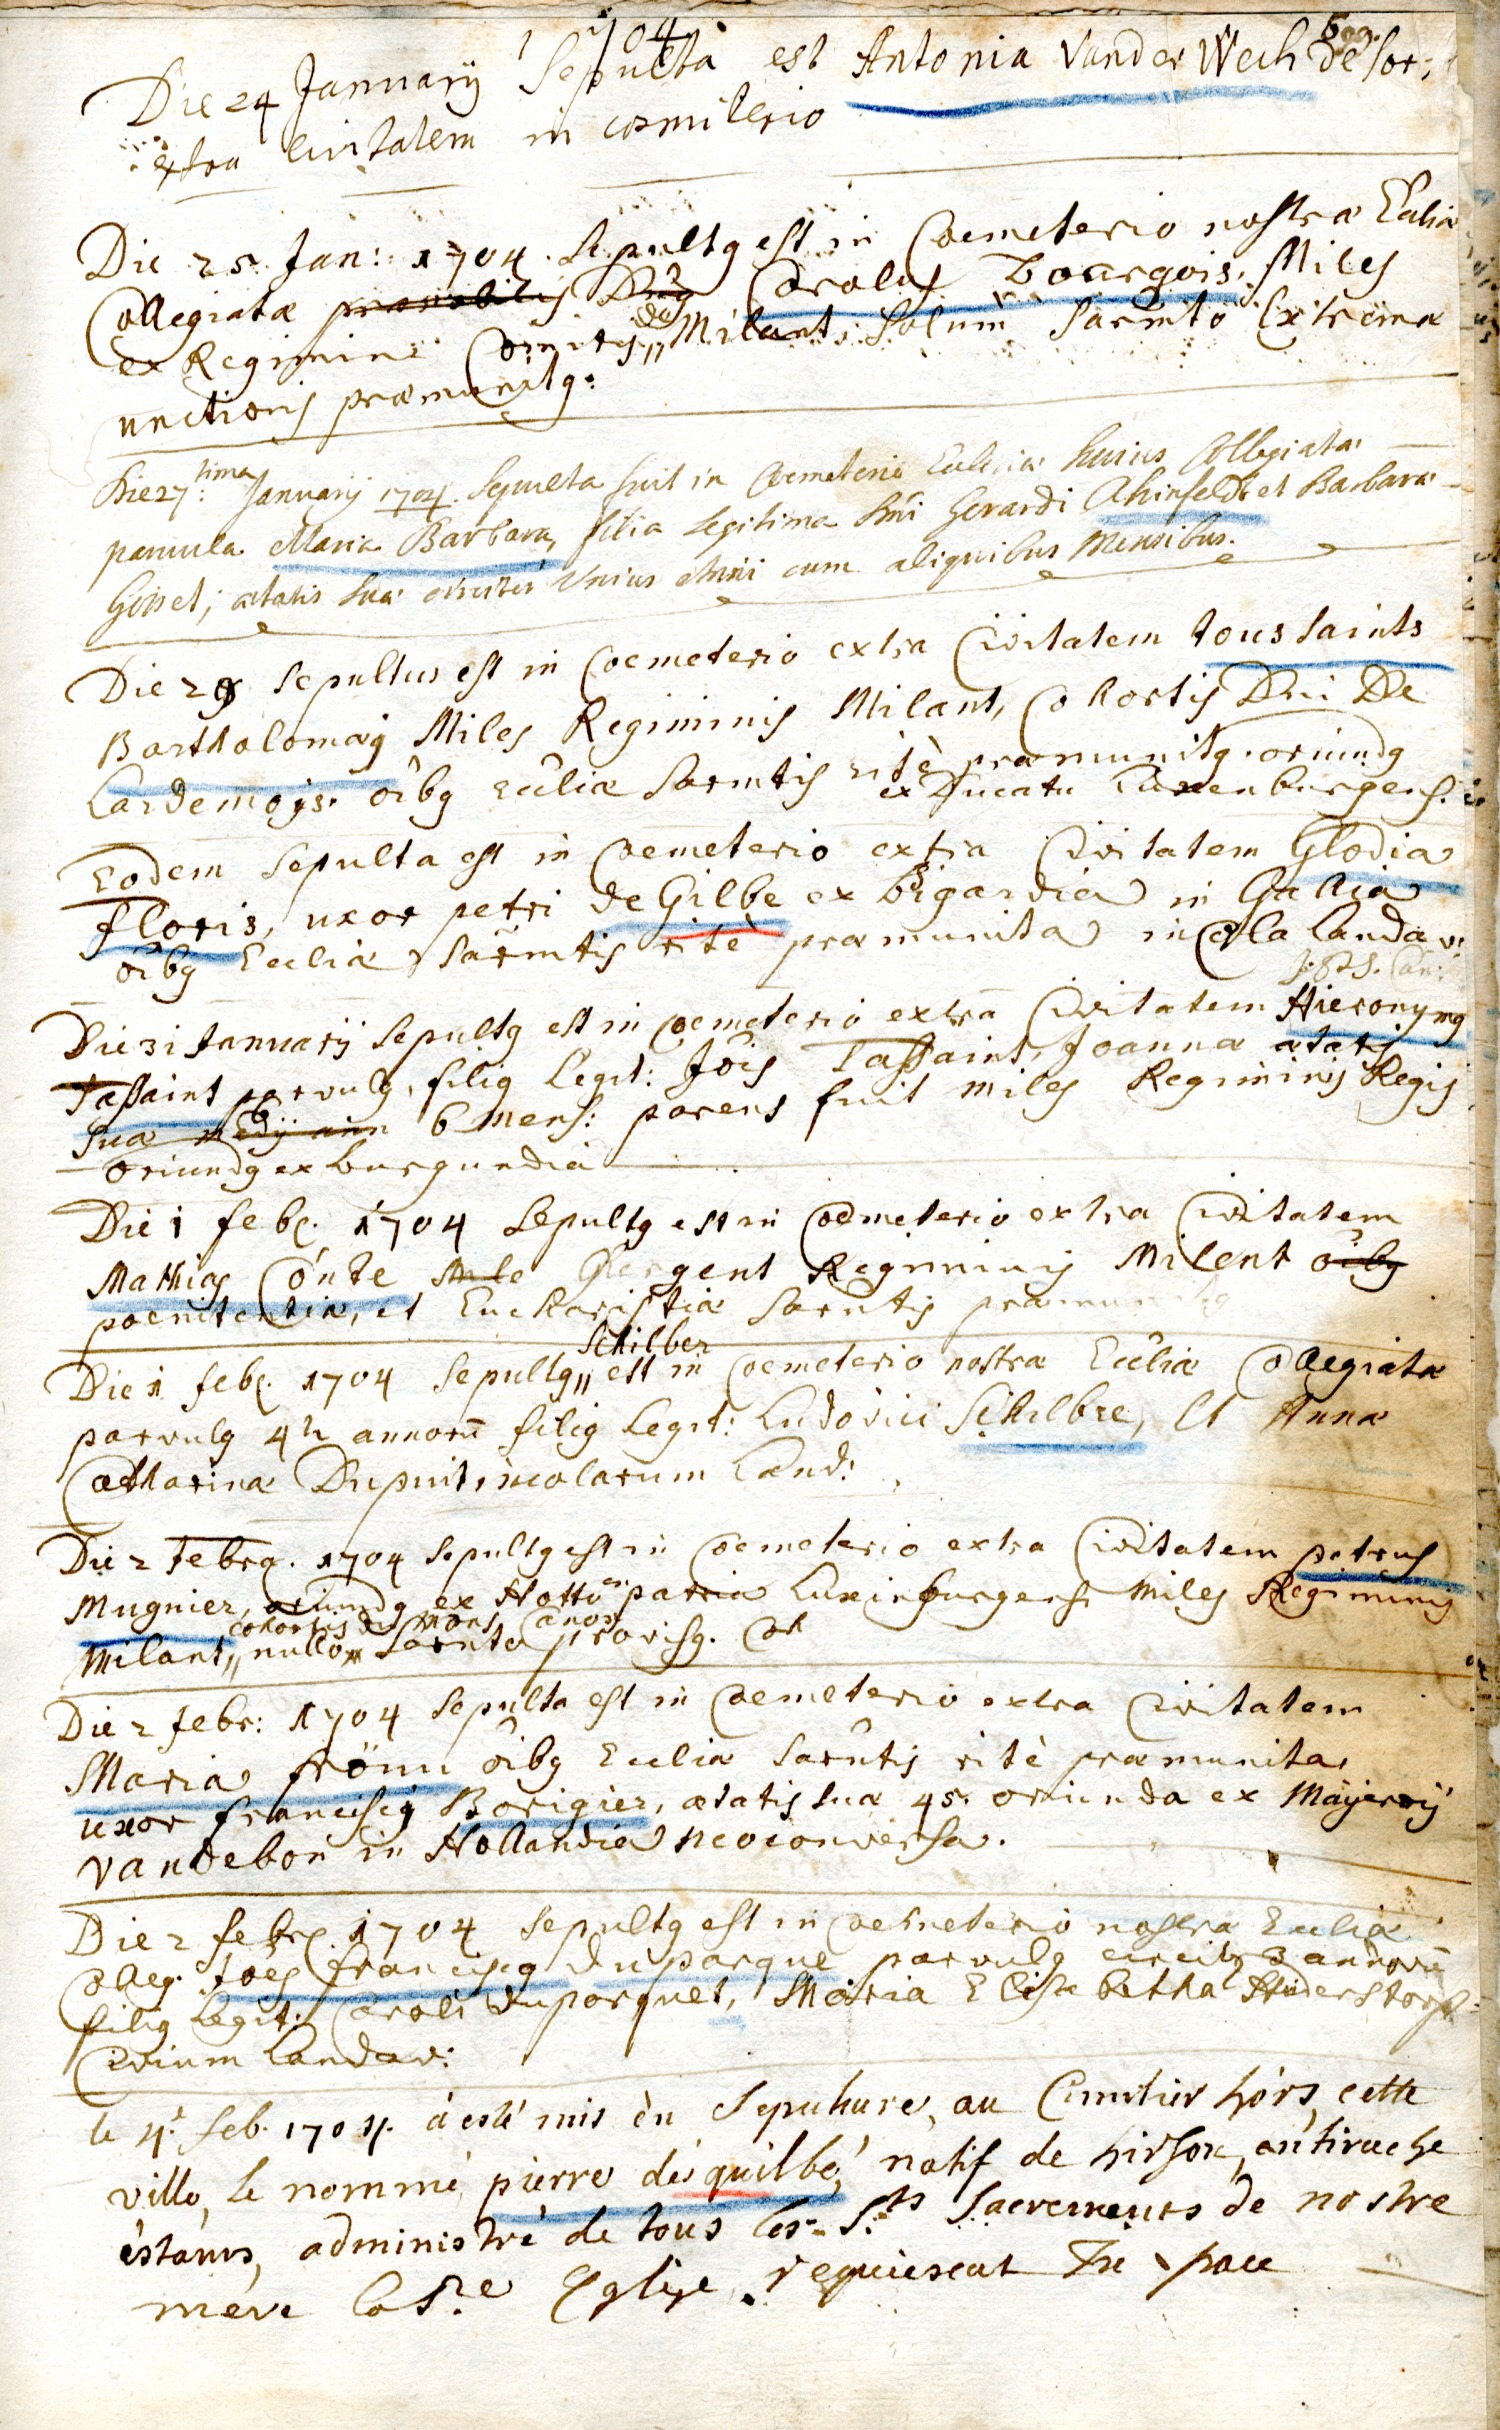 1704
Die 24 Januarij Sepulta est Antonia Vander Wech de Sor:
extra Civitatem in cosmiterio
Die 25 Jan: 1704. Sepultg est in Coemeterio nostræ Ecclia
Collegiatæ prænobilis Dng Carolus Bourgois, Miles
ex Regimine Comitis de Milant, Solum Sacrmto Extremæ
unctionis præmunitg.
Die 27tima: Januarij 1704. Sepulta fuit in Coemeterio Ecclesiæ huius Collegiatæ
parvula Maria Barbara, filia legitima Dni Gerardi Ahinfeldt et Barbaræ
Gosset; ætatis suæ circiter Unius Anni cum aliquibus Mensibus.
Die 29 Sepultus est in Coemeterio extra Civitatem toussaints
Bartholomæg Miles Regiminis Milant, Cohortis Dni De
Lardemojs. oibg Ecclia Sacrmtis ritè præmunitg. oriundg
ex Ducatu Luxenburgens.
Eodem Sepulta est in Coemeterio extra Civitatem Glodia
floris, uxor petri de Gilbe ex bigardia in Gallia
oibg Ecclia Sacrmtis ritè præmunita incola Landav:
Die 31 Januarij Sepultg est in Coemeterio extra Civitatem Hieronymg
Tassaint parvulg, filig Legit: Jois Tassaint, Joanna ætatis
suæ medij ann 6 mens: parens fuit miles Regiminis Regis
oriundg ex burgundia
Die 1 feb. 1704 Sepultg est in Coemeterio extra Civitatem
Mathias Conte Mile Chergent Regiminis Milent oibg
poenitentiæ, et Eucharistiæ Sacrmtis præmunitg
Die 1 feb. 1704 Sepultg Schilber est in Coemeterio nostræ Ecclia Collegiata
parvulg 4½ annorū filig Legit: Ludovici Schilbre, et Anna
Catharina Dupuit, incolarum Land:
Die 2 Febrg. 1704 Sepultg est in Coemeterio extra Civitatem petrus
Mugnier, oriundg ex Hotto patria Luxinburgens. Miles Regiminis
Milant, cohortis de mons nullo Sacrmto provisg.
Die 2 febr: 1704 Sepulta est in Coemeterio extra Civitatem
Maria frönn oibg Ecclia Sacrmtis ritè præmunita,
uxor francisci Borigier, ætatis sua 45. oriunda ex Mayerrij
Vandebon in Hollandia neoconversa.
Die 2 febr. 1704 Sepultg est in Coemeterio nostra Ecclia
Colleg. Joës franciscg duparque parvulg circit 3 annorū
filig Legit: Caroli duparquet, Maria Elisabetha
Civium Landav:
le 4: feb. 1704. à esté mis èn Sepulture, au Cimetier hórs, cette
ville, le nommé pierre dés quilbé, natif de hirson, en tirache
éstants, administré de tous les Sts Sacrements de nostre
mere la Ste Eglise, requiescat In pace